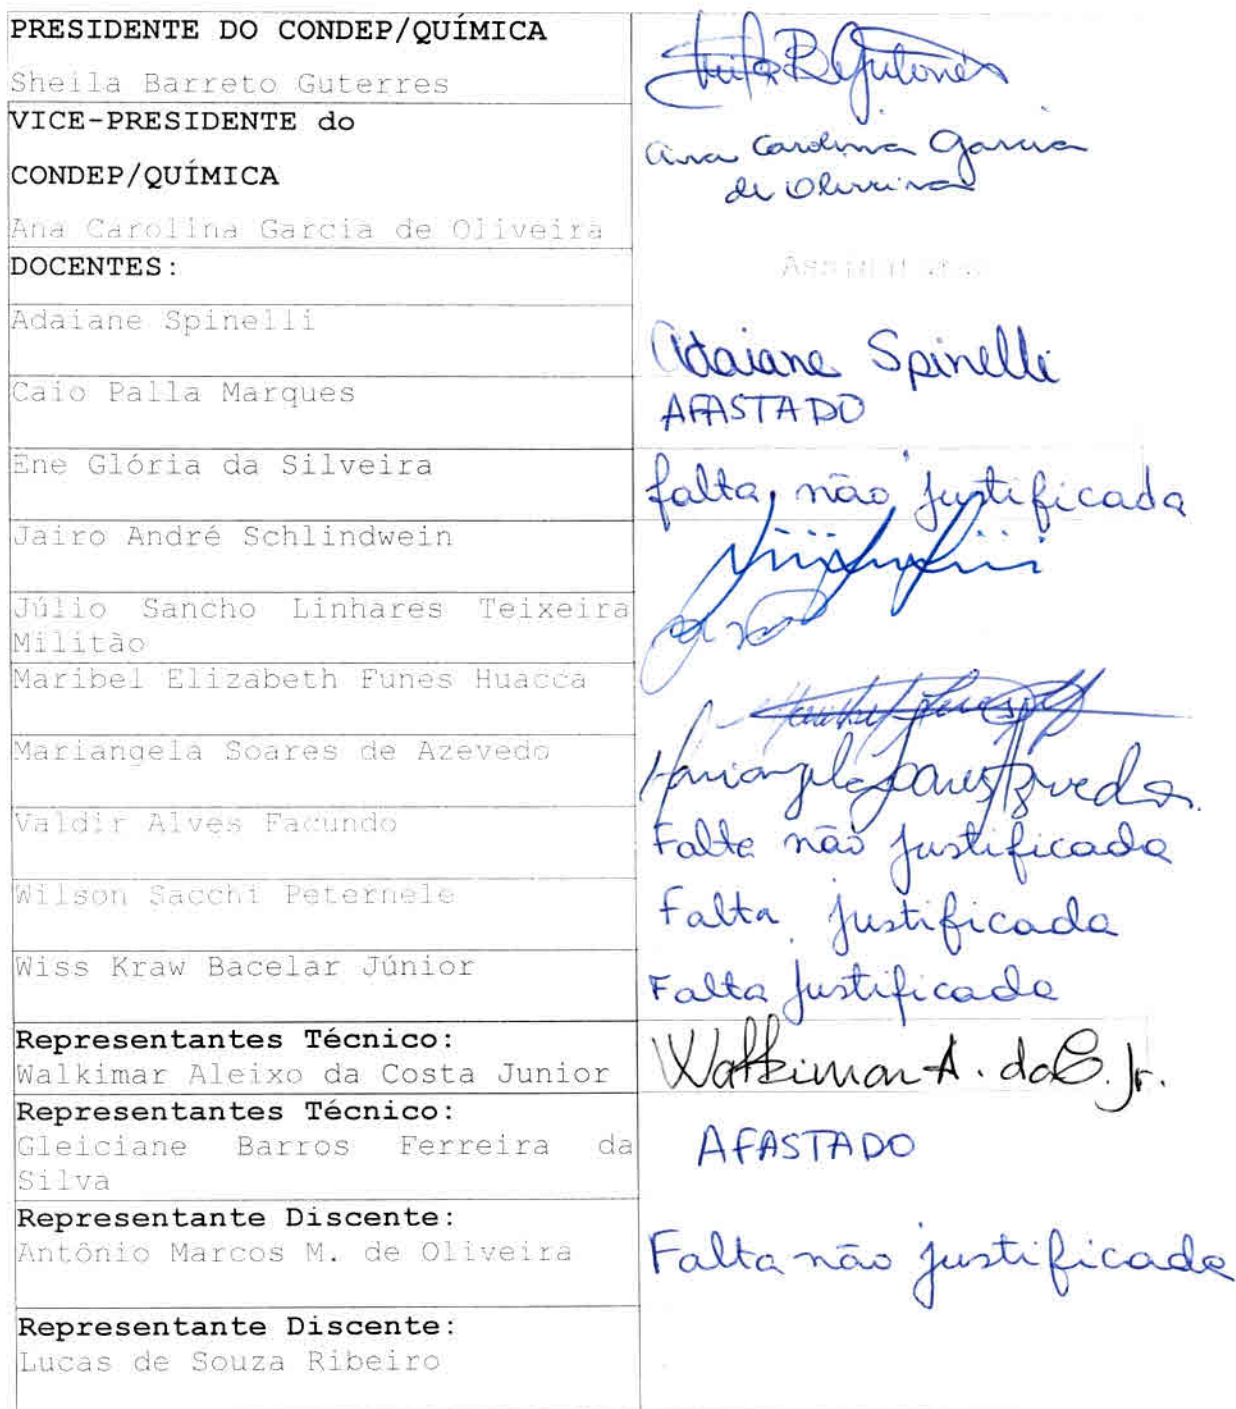 PRESIDENTE DO CONDEP/QUÍMICA
Sheila Barreto Guterres
VICE-PRESIDENTE do
CONDEP/QUÍMICA
Ana Carolina Garcia de Oliveira
Ana Carolina Garcia
de Oliveira
DOCENTES:
Adaiane Spinelli
Adaiane Spinelli
Caio Palla Marques
AFASTADO
Ene Glória da Silveira
falta não justificada
Jairo André Schlindwein
Júlio Sancho Linhares Teixeira
Militão
Maribel Elizabeth Funes Huacca
Mariangela Soares de Azevedo
Mariangela Soares Azevedo.
Valdir Alves Facundo
Falta não justificada
Wilson Sacchi Peternele
Falta justificada
Wiss Kraw Bacelar Júnior
Falta justificada
Representantes Técnico:
Walkimar Aleixo da Costa Junior
Walkimar A. da C. Jr.
Representantes Técnico:
Gleiciane Barros Ferreira da
Silva
AFASTADO
Representante Discente:
Antônio Marcos M. de Oliveira
Falta não justificada
Representante Discente:
Lucas de Souza Ribeiro